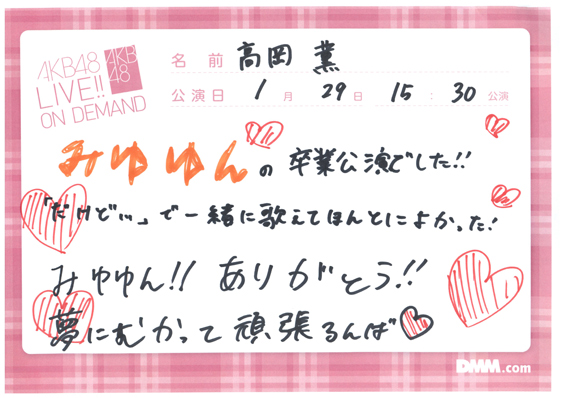 AKB48
LIVE!!
ON DEMAND
AKB
48
名前 高岡 薫
公演日 1月 29日 15:30公演
みゆゆんの卒業公演でした!!
「だけど…」で一緒に歌えてほんとによかった!
みゆゆん!! ありがとう!!
夢にむかって頑張るんば
DMM.com